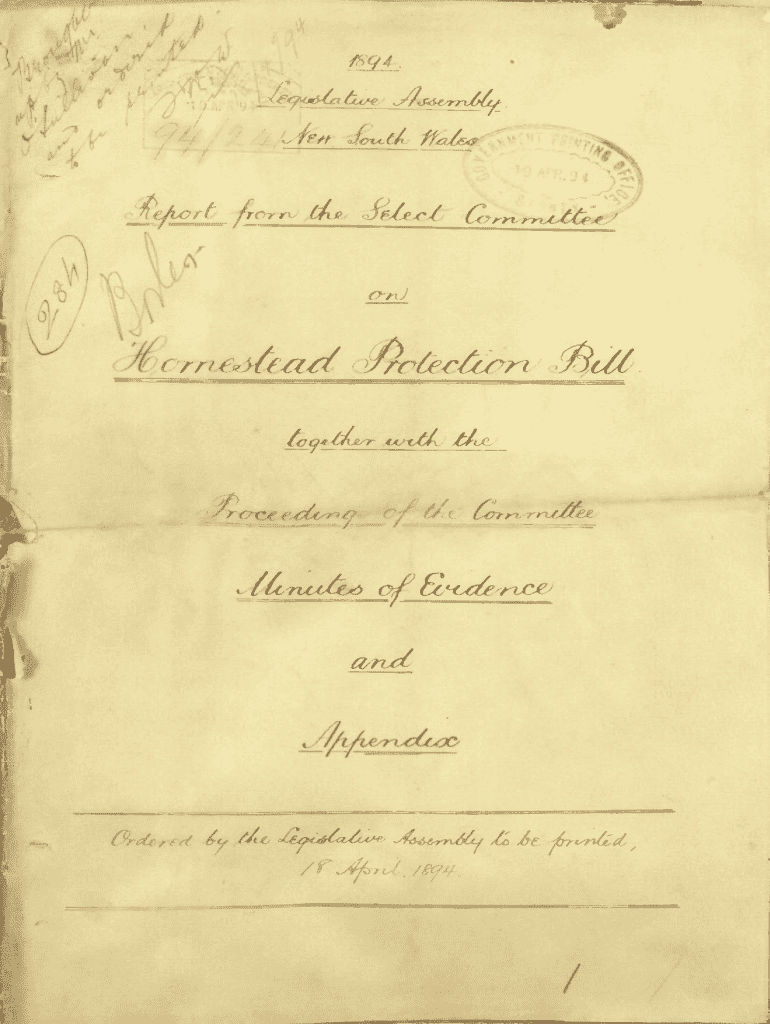 Brought
up by Mr
O'Sullivan
and ordered
to be printed
1894.
Legislative Assembly.
94/241
New South Wales
GOVERNMENT PRINTING OFFICE
19 APR. 94
Report from the Select Committee
on
284
Homestead Protection Bill.
together with the
Proceeding of the Committee
Minutes of Evidence
and
Appendix
Ordered by the Legislative Assembly to be printed,
18 April. 1894.
1